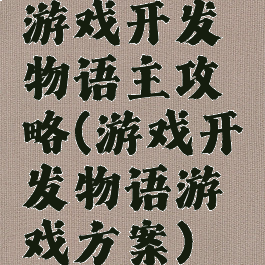 游戏开发
物语主攻
略(游戏开
发物语游
戏方案)